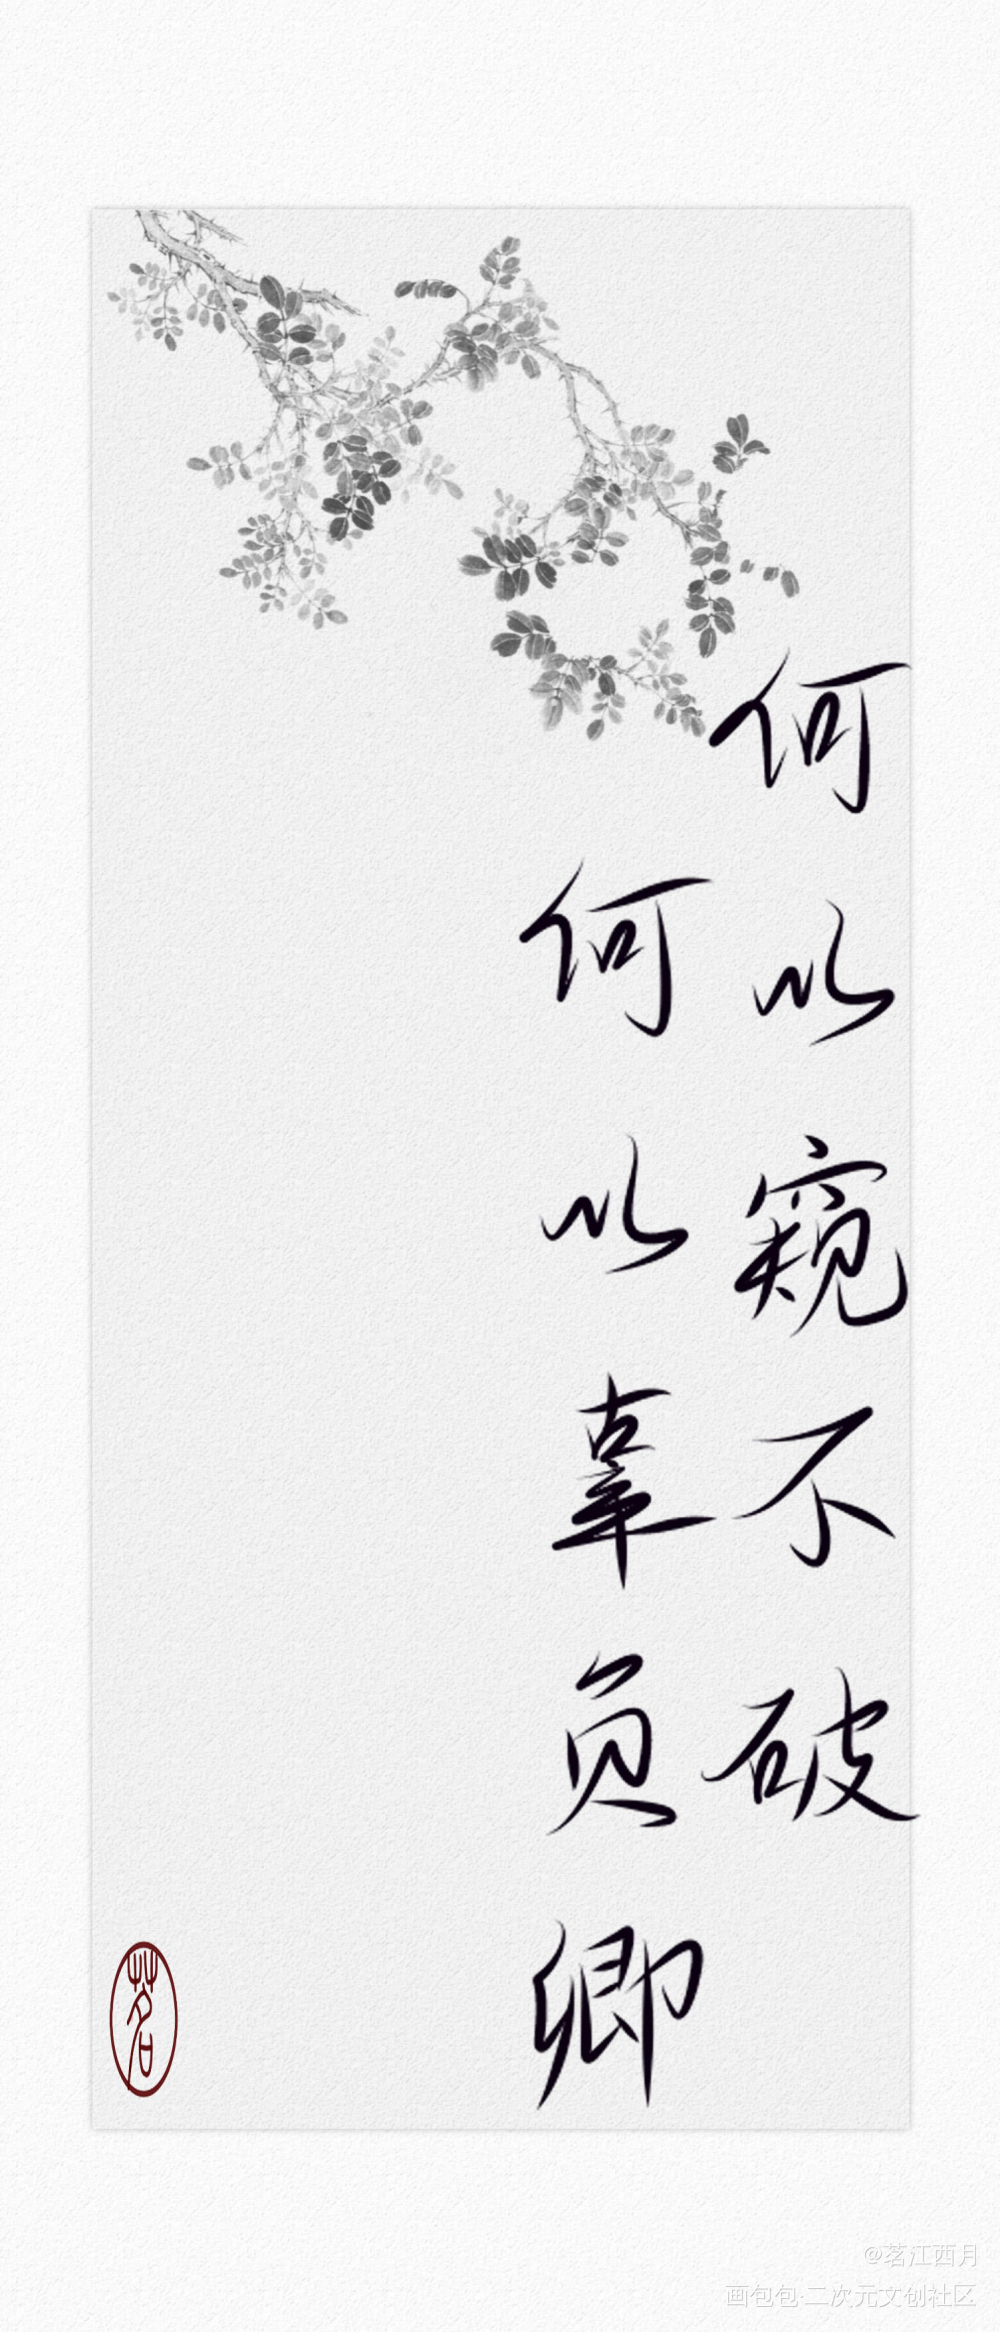 何以窥不破
何以辜负卿
茗
@茗江西月
画包包·二次元文创社区